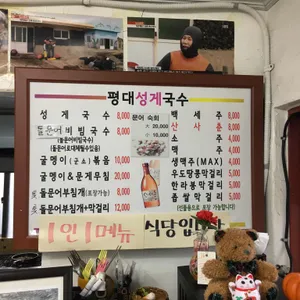 평대성게국수
성게국수 8,000
돌문어비빔국수 8,000
(돌문어비빔국수)
굴멩이(군소)볶음 10,000
굴멩이&문게무침 20,000
돌문어부침개(포장가능) 8,000
돌문어부침개+막걸리 12,000
문어 숙회
大 20,000
小 15,000
백세주 8,000
산사춘 8,000
소주 4,000
맥주 4,000
생맥주(MAX) 4,000
우도땅콩막걸리 5,000
한라봉막걸리 5,000
좁쌀막걸리 5,000
1인1메뉴 식당입니다